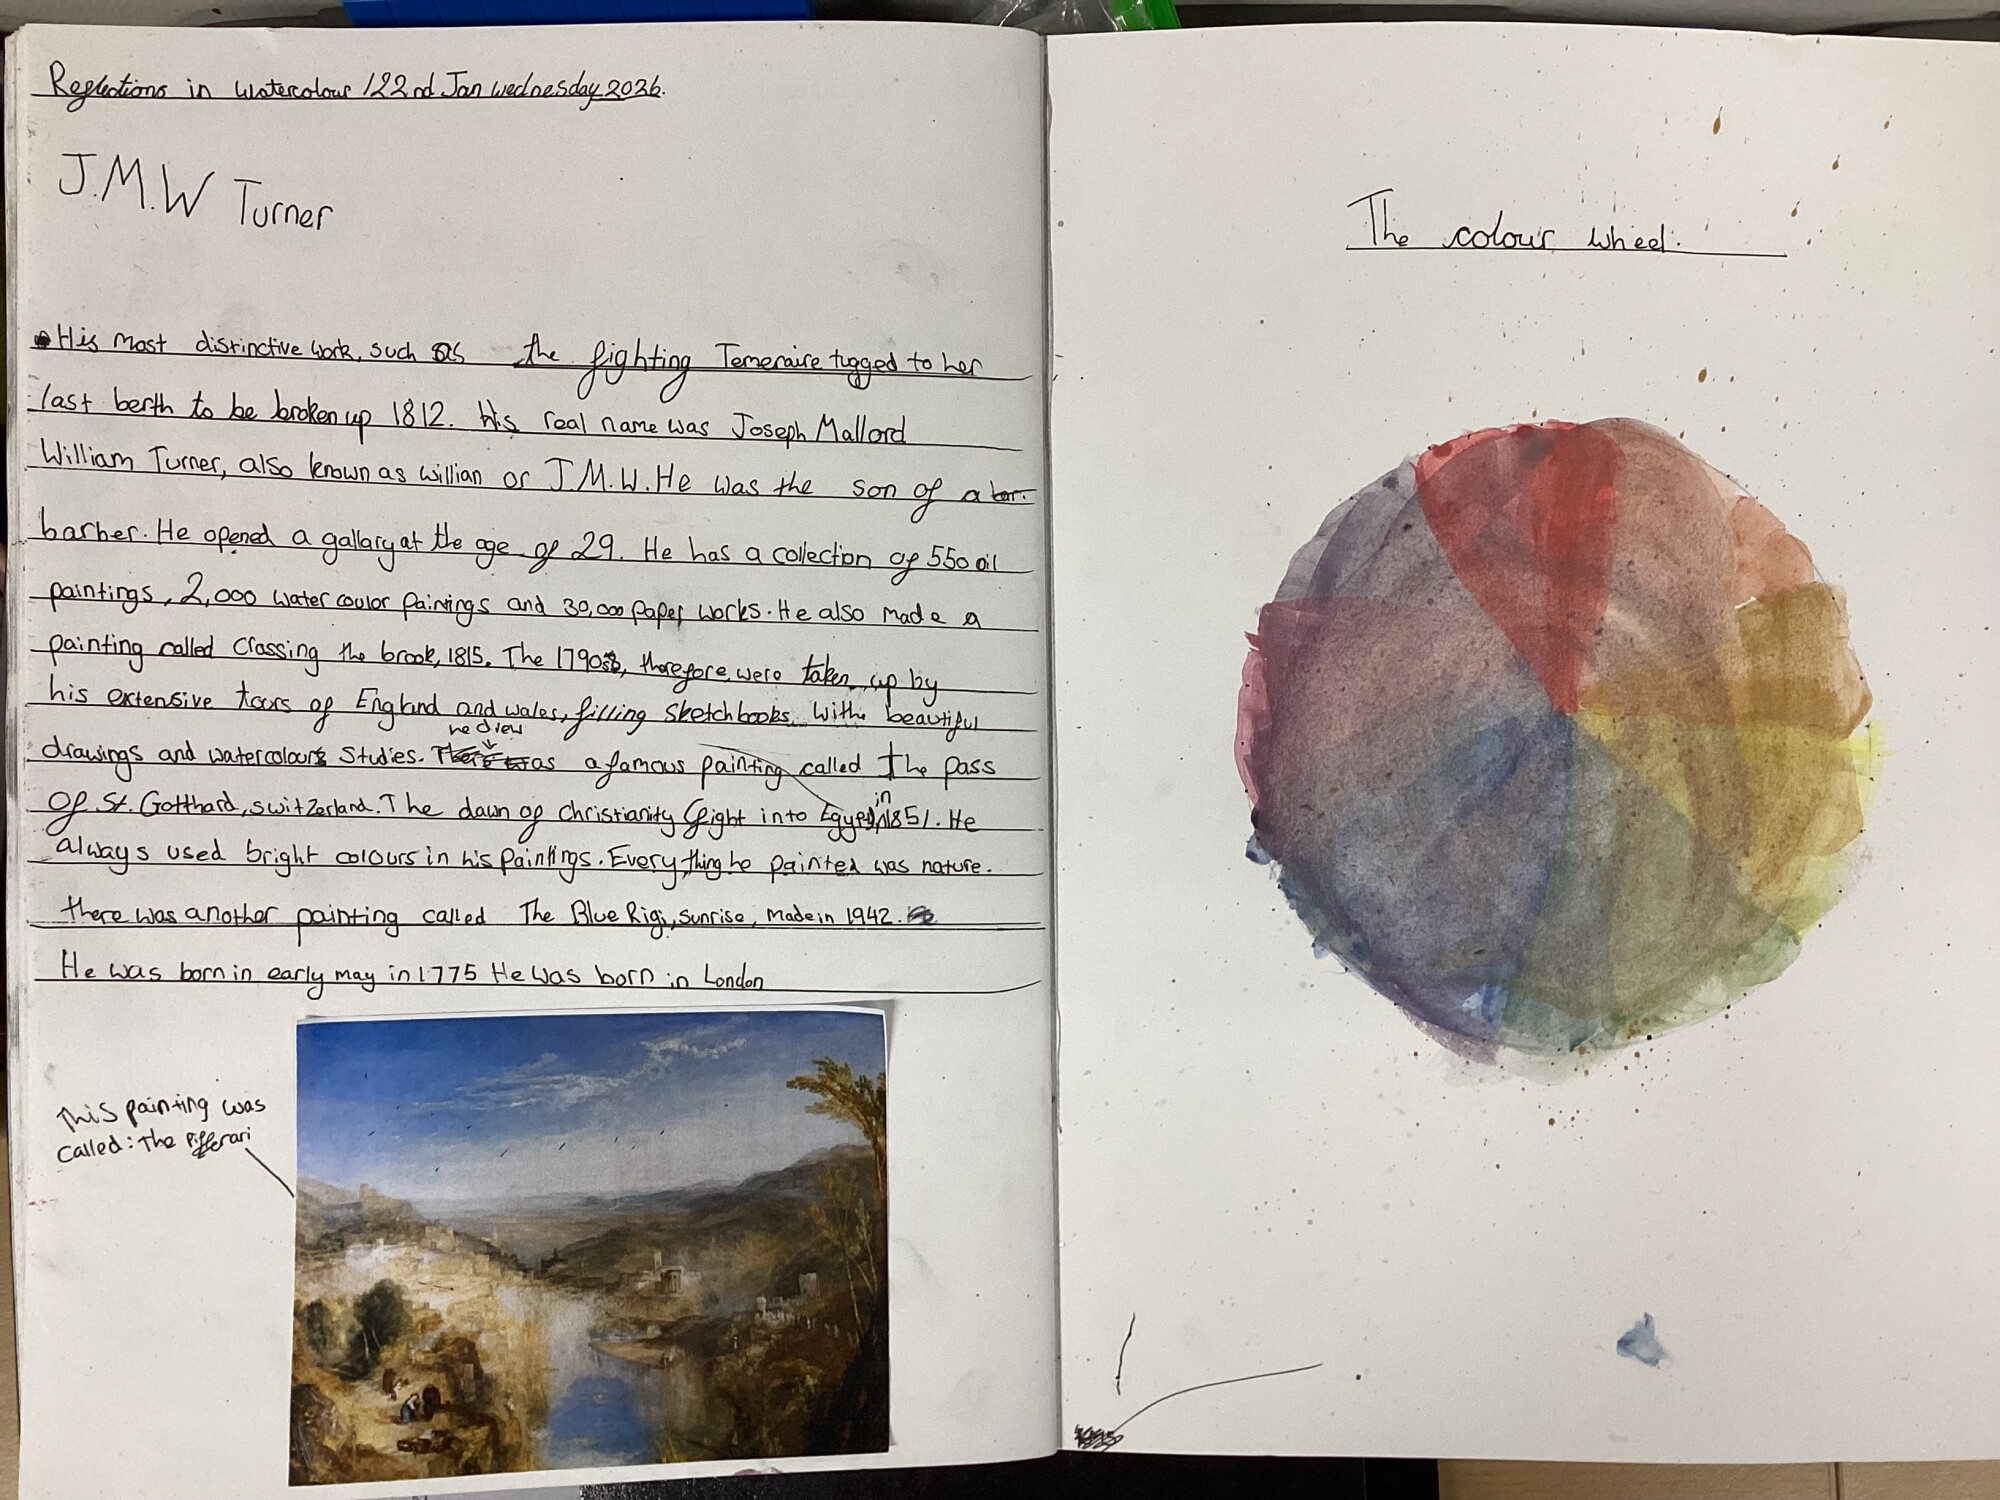 Reflections in watercolour 122nd Jan wednesday 2026.
J.M.W Turner
His most distinctive work, such as the fighting Temeraire tugged to her
last berth to be broken up 1812. His real name was Joseph Mallord
William Turner, also known as willian or J.M.W. He was the son of a bar-
barber. He opened a gallary at the age of 29. He has a collection of 550 oil
paintings, 2,000 water coulor painings and 30,000 paper works. He also made a
painting called Crossing the brook, 1815. The 1790s, therefore, were taken up by
his extensive tours of England and wales, filling sketchbooks withe beautiful
he drew
drawings and watercolours studies. as a famous painting called the pass
of St. Gotthard, switzerland. The dawn of christianity (flight into Egypt) in 1851. He
always used bright colours in his paintings. Everything he painted was nature.
there was another painting called The Blue Rigi, sunrise, made in 1942.
He was born in early may in 1775 He was born in London
This painting was
called: The Pifferari
The colour wheel.